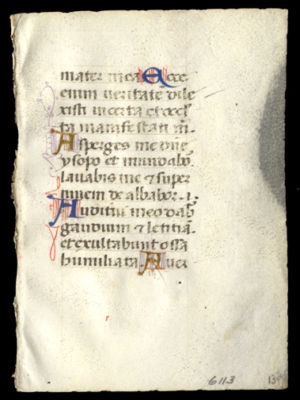 mater mea Ecce
enim veritate dile
xisti incerta et occl
ta manifestasti m̄
Asperges me dn̄e
ysopo et mundabo
lavabis me & super
nivem dealbabor.
Auditui meo dab̄
gaudium & letitiā
et exultabunt ossa
humiliata. Aver
6113